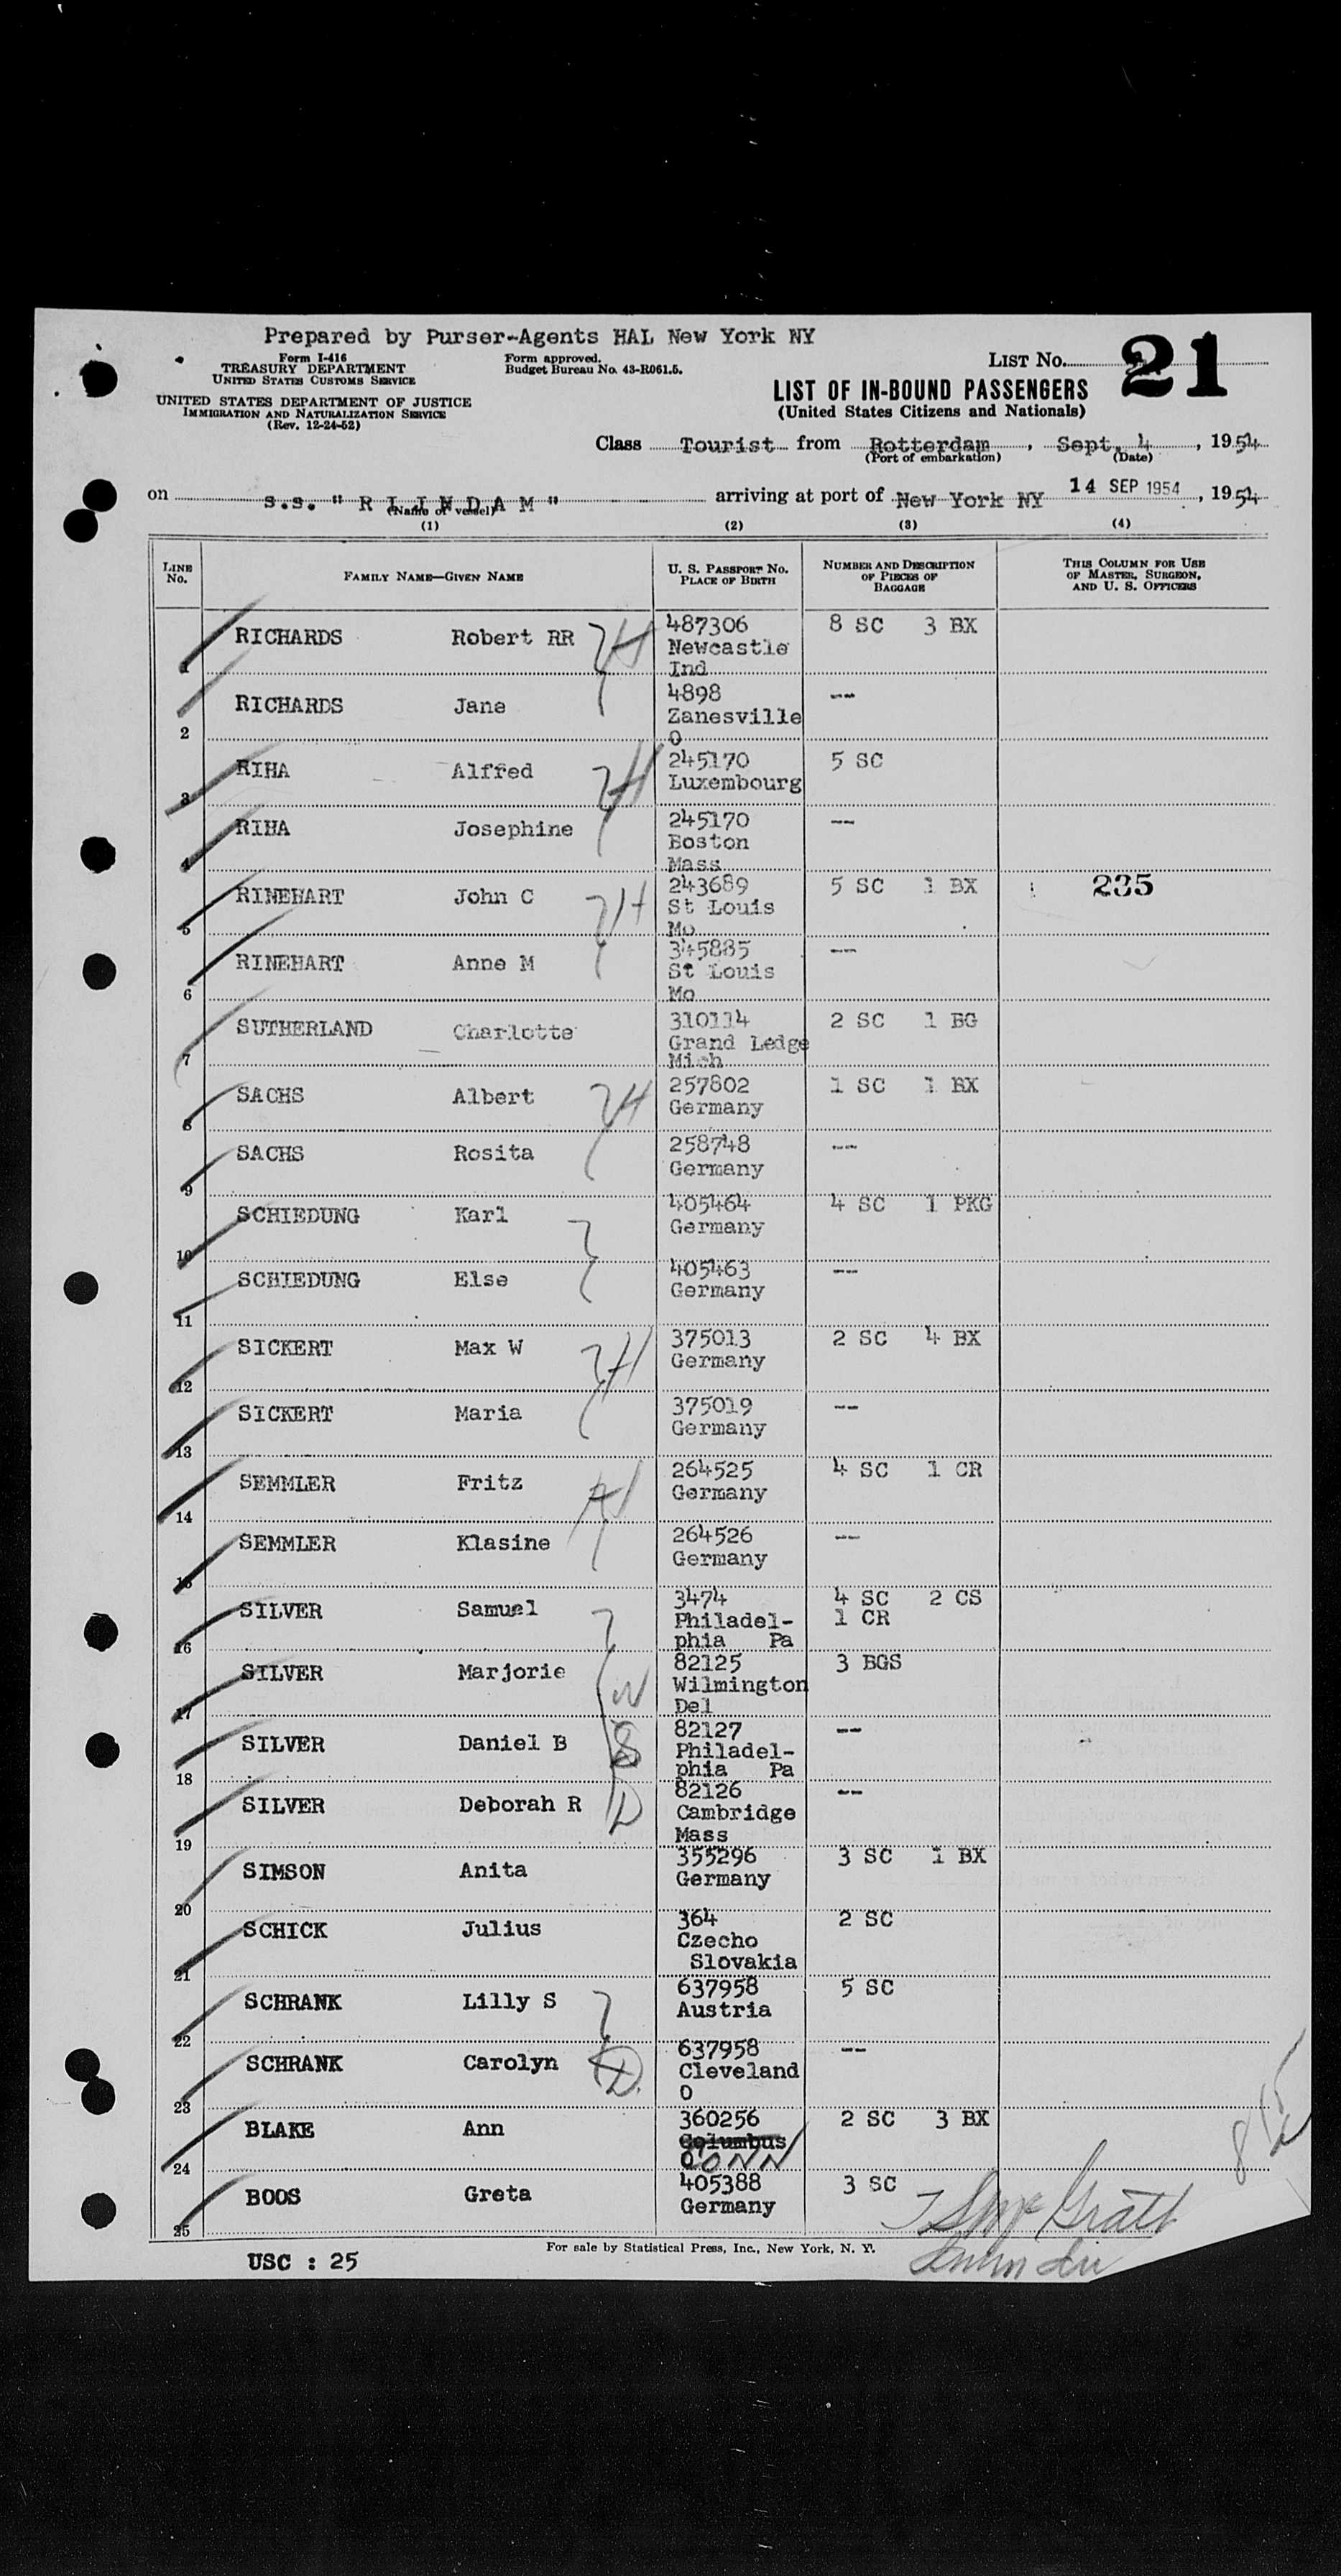 Prepared by Purser-Agents HAL New York NY
Form I-416
TREASURY DEPARTMENT
UNITED STATES CUSTOMS SERVICE
UNITED STATES DEPARTMENT OF JUSTICE
IMMIGRATION AND NATURALIZATION SERVICE
(Rev. 12-24-52)
Form approved.
Budget Bureau No. 43-R061.5.
LIST No. 21
LIST OF IN-BOUND PASSENGERS
(United States Citizens and Nationals)
Class Tourist from Rotterdam, Sept. 4, 1954
(Port of embarkation) (Date)
on s.s. " R I J N D A M " arriving at port of New York NY 14 SEP 1954, 1954
(Name of vessel)
(1) (2) (3) (4)
LINE No. FAMILY NAME—GIVEN NAME U. S. PASSPORT NO. PLACE OF BIRTH NUMBER AND DESCRIPTION OF PIECES OF BAGGAGE THIS COLUMN FOR USE OF MASTER, SURGEON, AND U. S. OFFICERS
1 RICHARDS Robert RR 487306 8 SC 3 BX
Newcastle
Ind
2 RICHARDS Jane 4898 --
Zanesville
O
3 RIHA Alfred 245170 5 SC
Luxembourg
4 RIHA Josephine 245170 --
Boston
Mass
5 RINEHART John C 243689 5 SC 1 BX 235
St Louis
Mo
6 RINEHART Anne M 345885 --
St Louis
Mo
7 SUTHERLAND Charlotte 310114 2 SC 1 BG
Grand Ledge
Mich
8 SACHS Albert 257802 1 SC 1 BX
Germany
9 SACHS Rosita 258748 --
Germany
10 SCHIEDUNG Karl 405464 4 SC 1 PKG
Germany
11 SCHIEDUNG Else 405463 --
Germany
12 SICKERT Max W 375013 2 SC 4 BX
Germany
13 SICKERT Maria 375019 --
Germany
14 SEMMLER Fritz 264525 4 SC 1 CR
Germany
15 SEMMLER Klasine 264526 --
Germany
16 SILVER Samuel 3474 4 SC 2 CS
Philadel- 1 CR
phia Pa
17 SILVER Marjorie W 82125 3 BGS
Wilmington
Del
18 SILVER Daniel B S 82127 --
Philadel-
phia Pa
19 SILVER Deborah R D 82126 --
Cambridge
Mass
20 SIMSON Anita 355296 3 SC 1 BX
Germany
21 SCHICK Julius 364 2 SC
Czecho
Slovakia
22 SCHRANK Lilly S 637958 5 SC
Austria
23 SCHRANK Carolyn D 637958 --
Cleveland
O
24 BLAKE Ann 360256 2 SC 3 BX
Columbus
O CONN
25 BOOS Greta 405388 3 SC
Germany
For sale by Statistical Press, Inc., New York, N. Y.
USC : 25